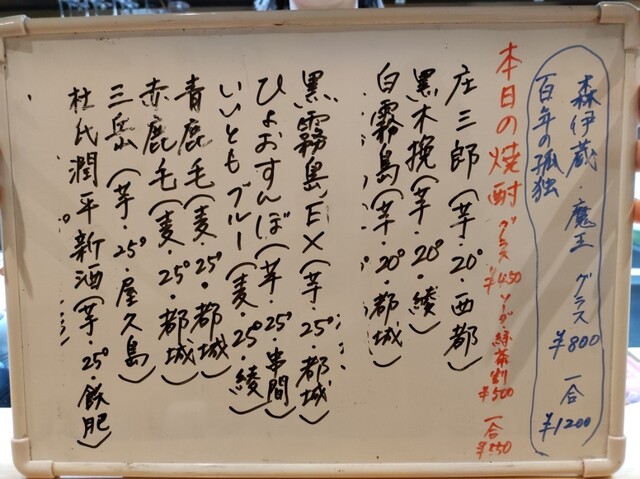 森伊蔵・魔王 グラス ¥800 一合 ¥1200
百年の孤独
本日の焼酎 グラス ¥450 ソーダ・緑茶割 ¥500 一合
庄三郎(芋・20°・西都)
黒木挽(芋・20°・綾)
白霧島(芋・20°・都城)
黒霧島EX(芋・25°・都城)
ひょおすんぼ(芋・25°・串間)
いいともブルー(麦・25°・綾)
青鹿毛(麦・25°・都城)
赤鹿毛(麦・25°・都城)
三岳(芋・25°・屋久島)
杜氏潤平新酒(芋・25°・飫肥)